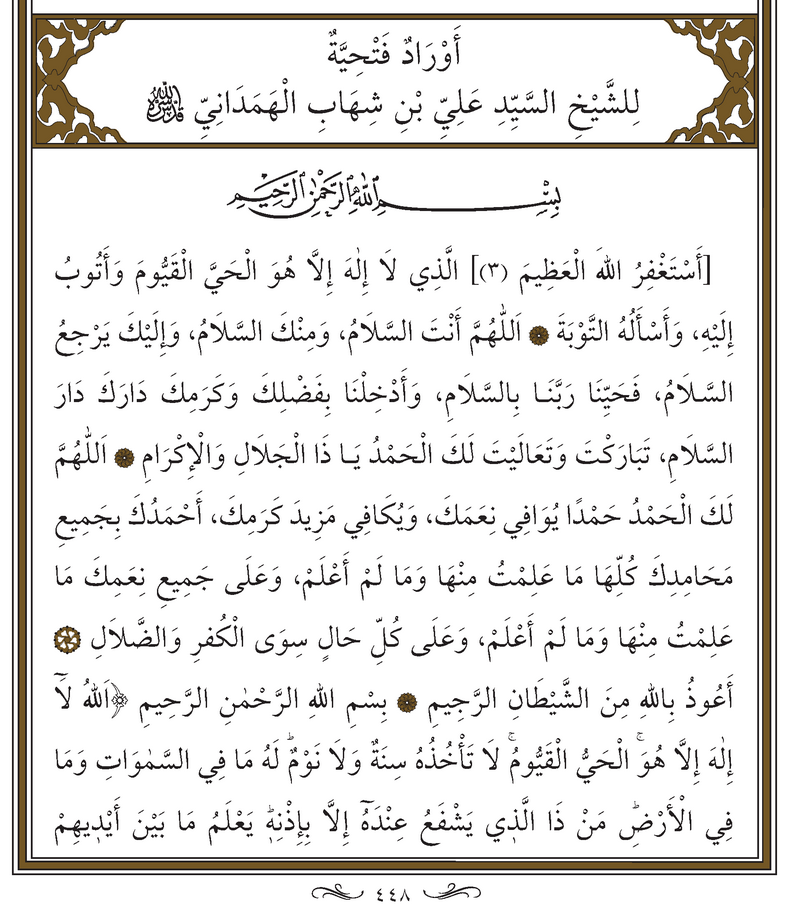 أَوْرَادٌ فَتْحِيَّةٌ
لِلشَّيْخِ السَّيِّدِ عَلِيِّ بْنِ شِهَابِ الْهَمَدَانِيِّ
بِسْمِ اللهِ الرَّحْمٰنِ الرَّحِيمِ
[أَسْتَغْفِرُ اللهَ الْعَظِيمَ (٣)] الَّذِي لَا إِلٰهَ إِلَّا هُوَ الْحَيَّ الْقَيُّومَ وَأَتُوبُ
إِلَيْهِ، وَأَسْأَلُهُ التَّوْبَةَ ۞ اَللّٰهُمَّ أَنْتَ السَّلَامُ، وَمِنْكَ السَّلَامُ، وَإِلَيْكَ يَرْجِعُ
السَّلَامُ، فَحَيِّنَا رَبَّنَا بِالسَّلَامِ، وَأَدْخِلْنَا بِفَضْلِكَ وَكَرَمِكَ دَارَكَ دَارَ
السَّلَامِ، تَبَارَكْتَ وَتَعَالَيْتَ لَكَ الْحَمْدُ يَا ذَا الْجَلَالِ وَالْإِكْرَامِ ۞ اَللّٰهُمَّ
لَكَ الْحَمْدُ حَمْدًا يُوَافِي نِعَمَكَ، وَيُكَافِي مَزِيدَ كَرَمِكَ، أَحْمَدُكَ بِجَمِيعِ
مَحَامِدِكَ كُلِّهَا مَا عَلِمْتُ مِنْهَا وَمَا لَمْ أَعْلَمْ، وَعَلَى جَمِيعِ نِعَمِكَ مَا
عَلِمْتُ مِنْهَا وَمَا لَمْ أَعْلَمْ، وَعَلَى كُلِّ حَالٍ سِوَى الْكُفرِ وَالضَّلَالِ ۞
أَعُوذُ بِاللهِ مِنَ الشَّيْطَانِ الرَّجِيمِ ۞ بِسْمِ اللهِ الرَّحْمٰنِ الرَّحِيمِ ﴿اَللهُ لَٓا
إِلٰهَ إِلَّا هُوَۚ الْحَيُّ الْقَيُّومُۚ لَا تَأْخُذُهُ سِنَةٌ وَلَا نَوْمٌۜ لَهُ مَا فِي السَّمٰوَاتِ وَمَا
فِي الْأَرْضِۜ مَنْ ذَا الَّذِي يَشْفَعُ عِنْدَهُٓ إِلَّا بِإِذْنِهِۜ يَعْلَمُ مَا بَيْنَ أَيْدِيهِمْ
٤٤٨